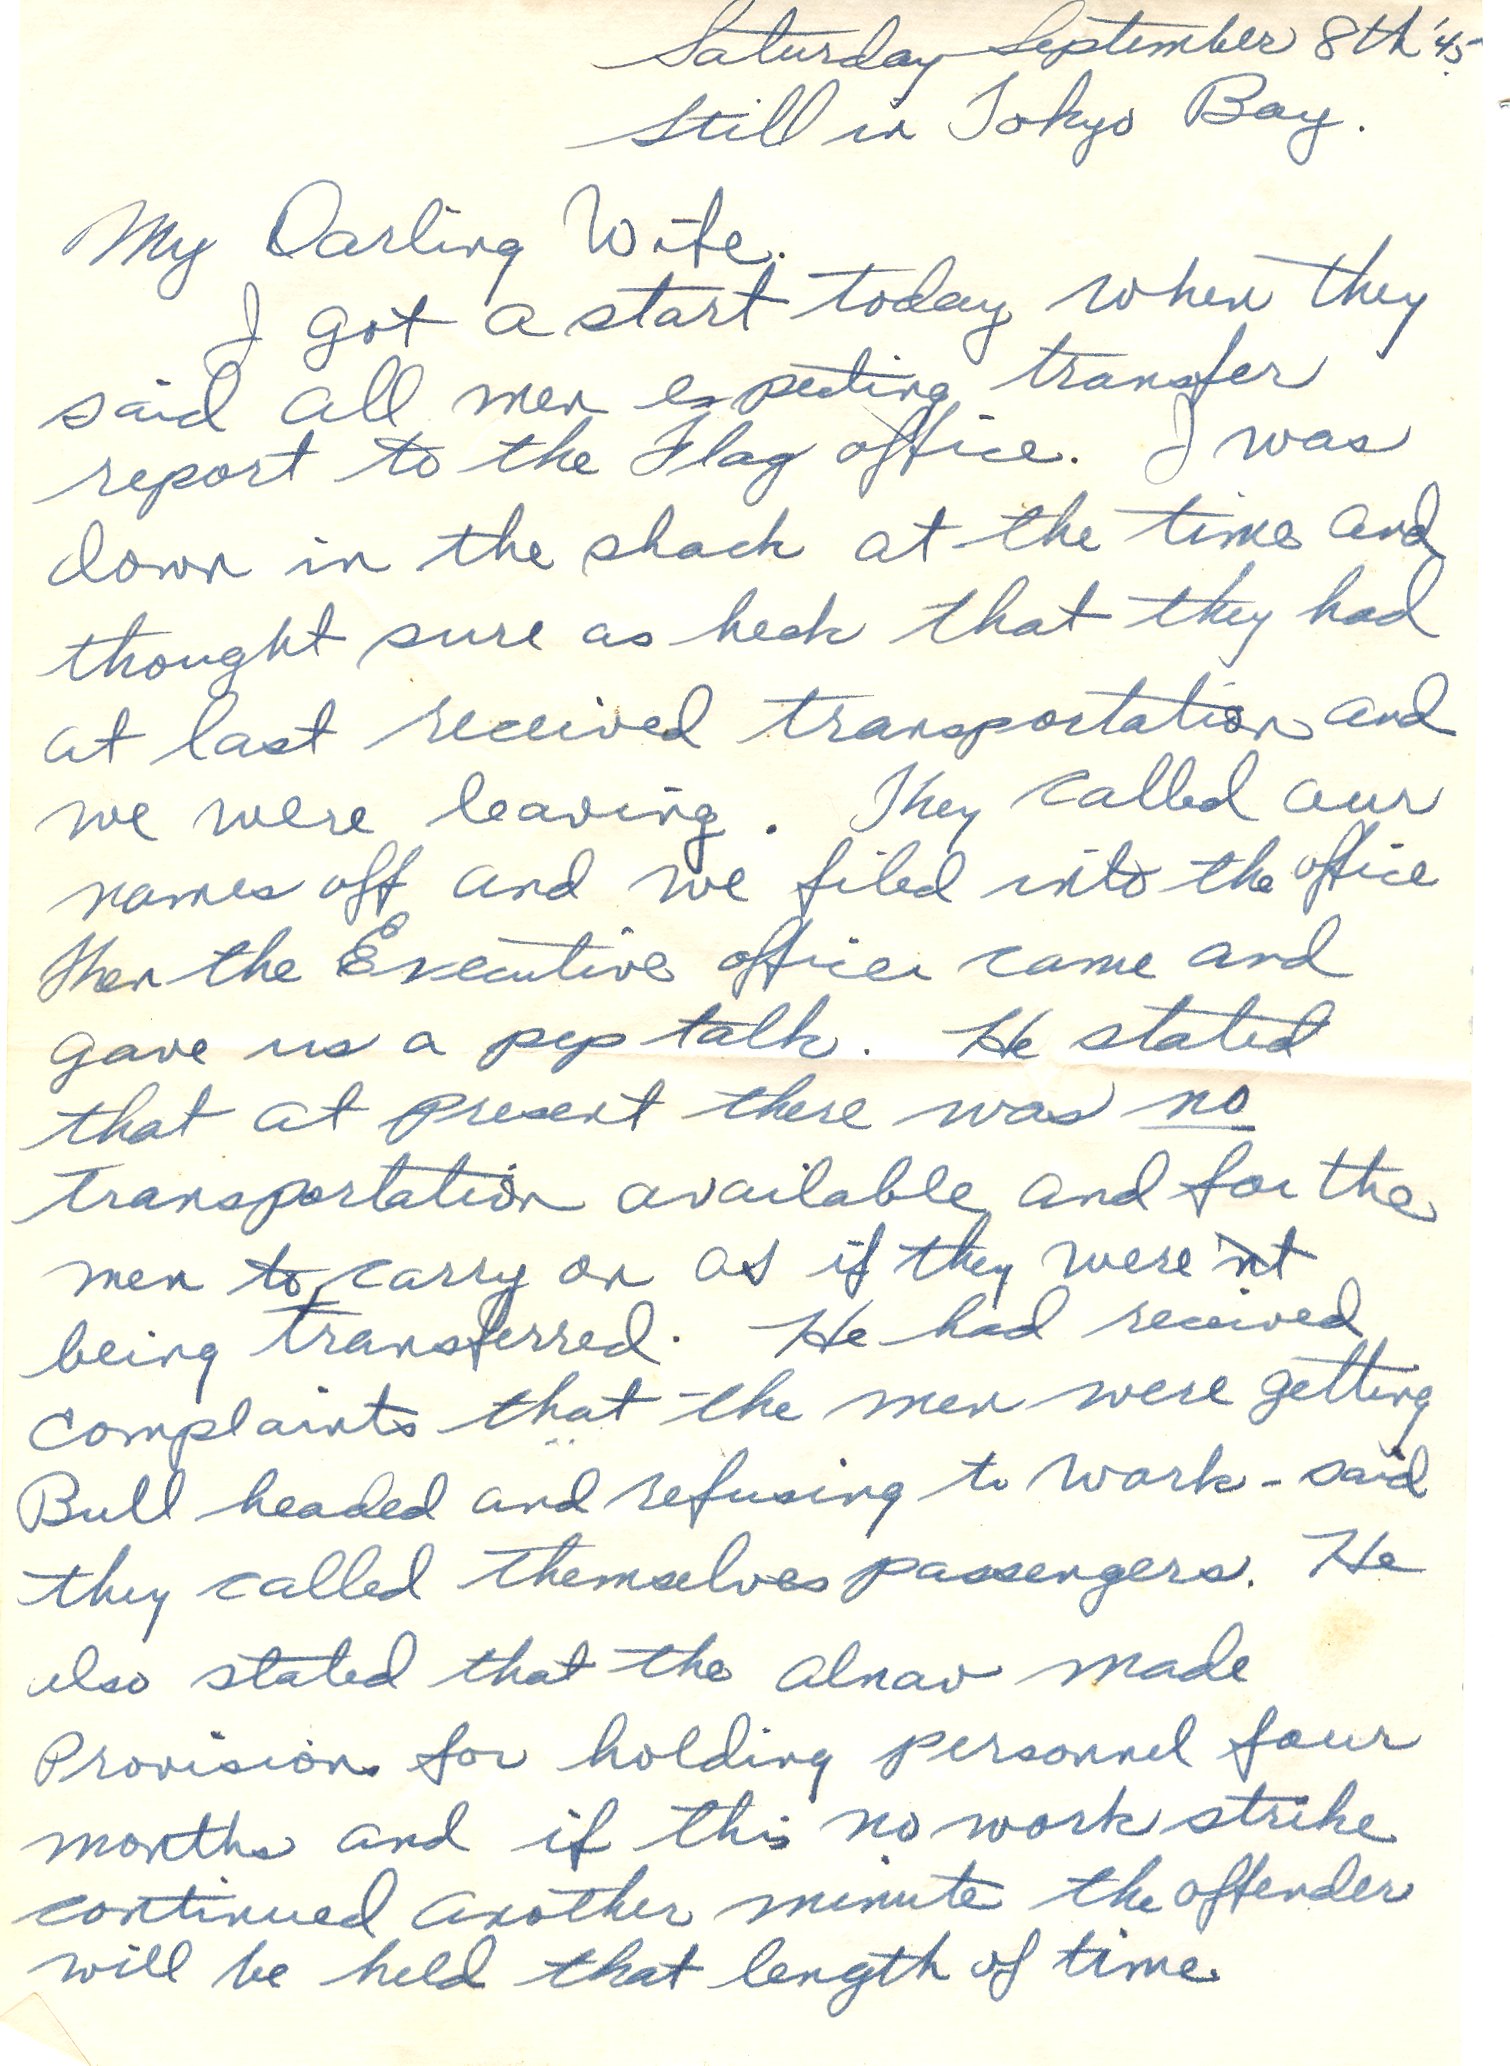 Saturday September 8th '45
Still in Tokyo Bay.
My Darling Wife.
I got a start today when they
said all men expecting transfer
report to the Flag office. I was
down in the shack at the time and
thought sure as heck that they had
at last received transportation and
we were leaving. They called our
names off and we filed into the office
Then the Executive officer came and
gave us a pep talk. He stated
that at present there was no
transportation available and for the
men to carry on as if they weren't
being transferred. He had received
complaints that the men were getting
Bull headed and refusing to work - said
they called themselves passengers. He
also stated that the alnav made
Provision for holding personnel four
months and if this no work strike
continued another minute the offender
will be held that length of time